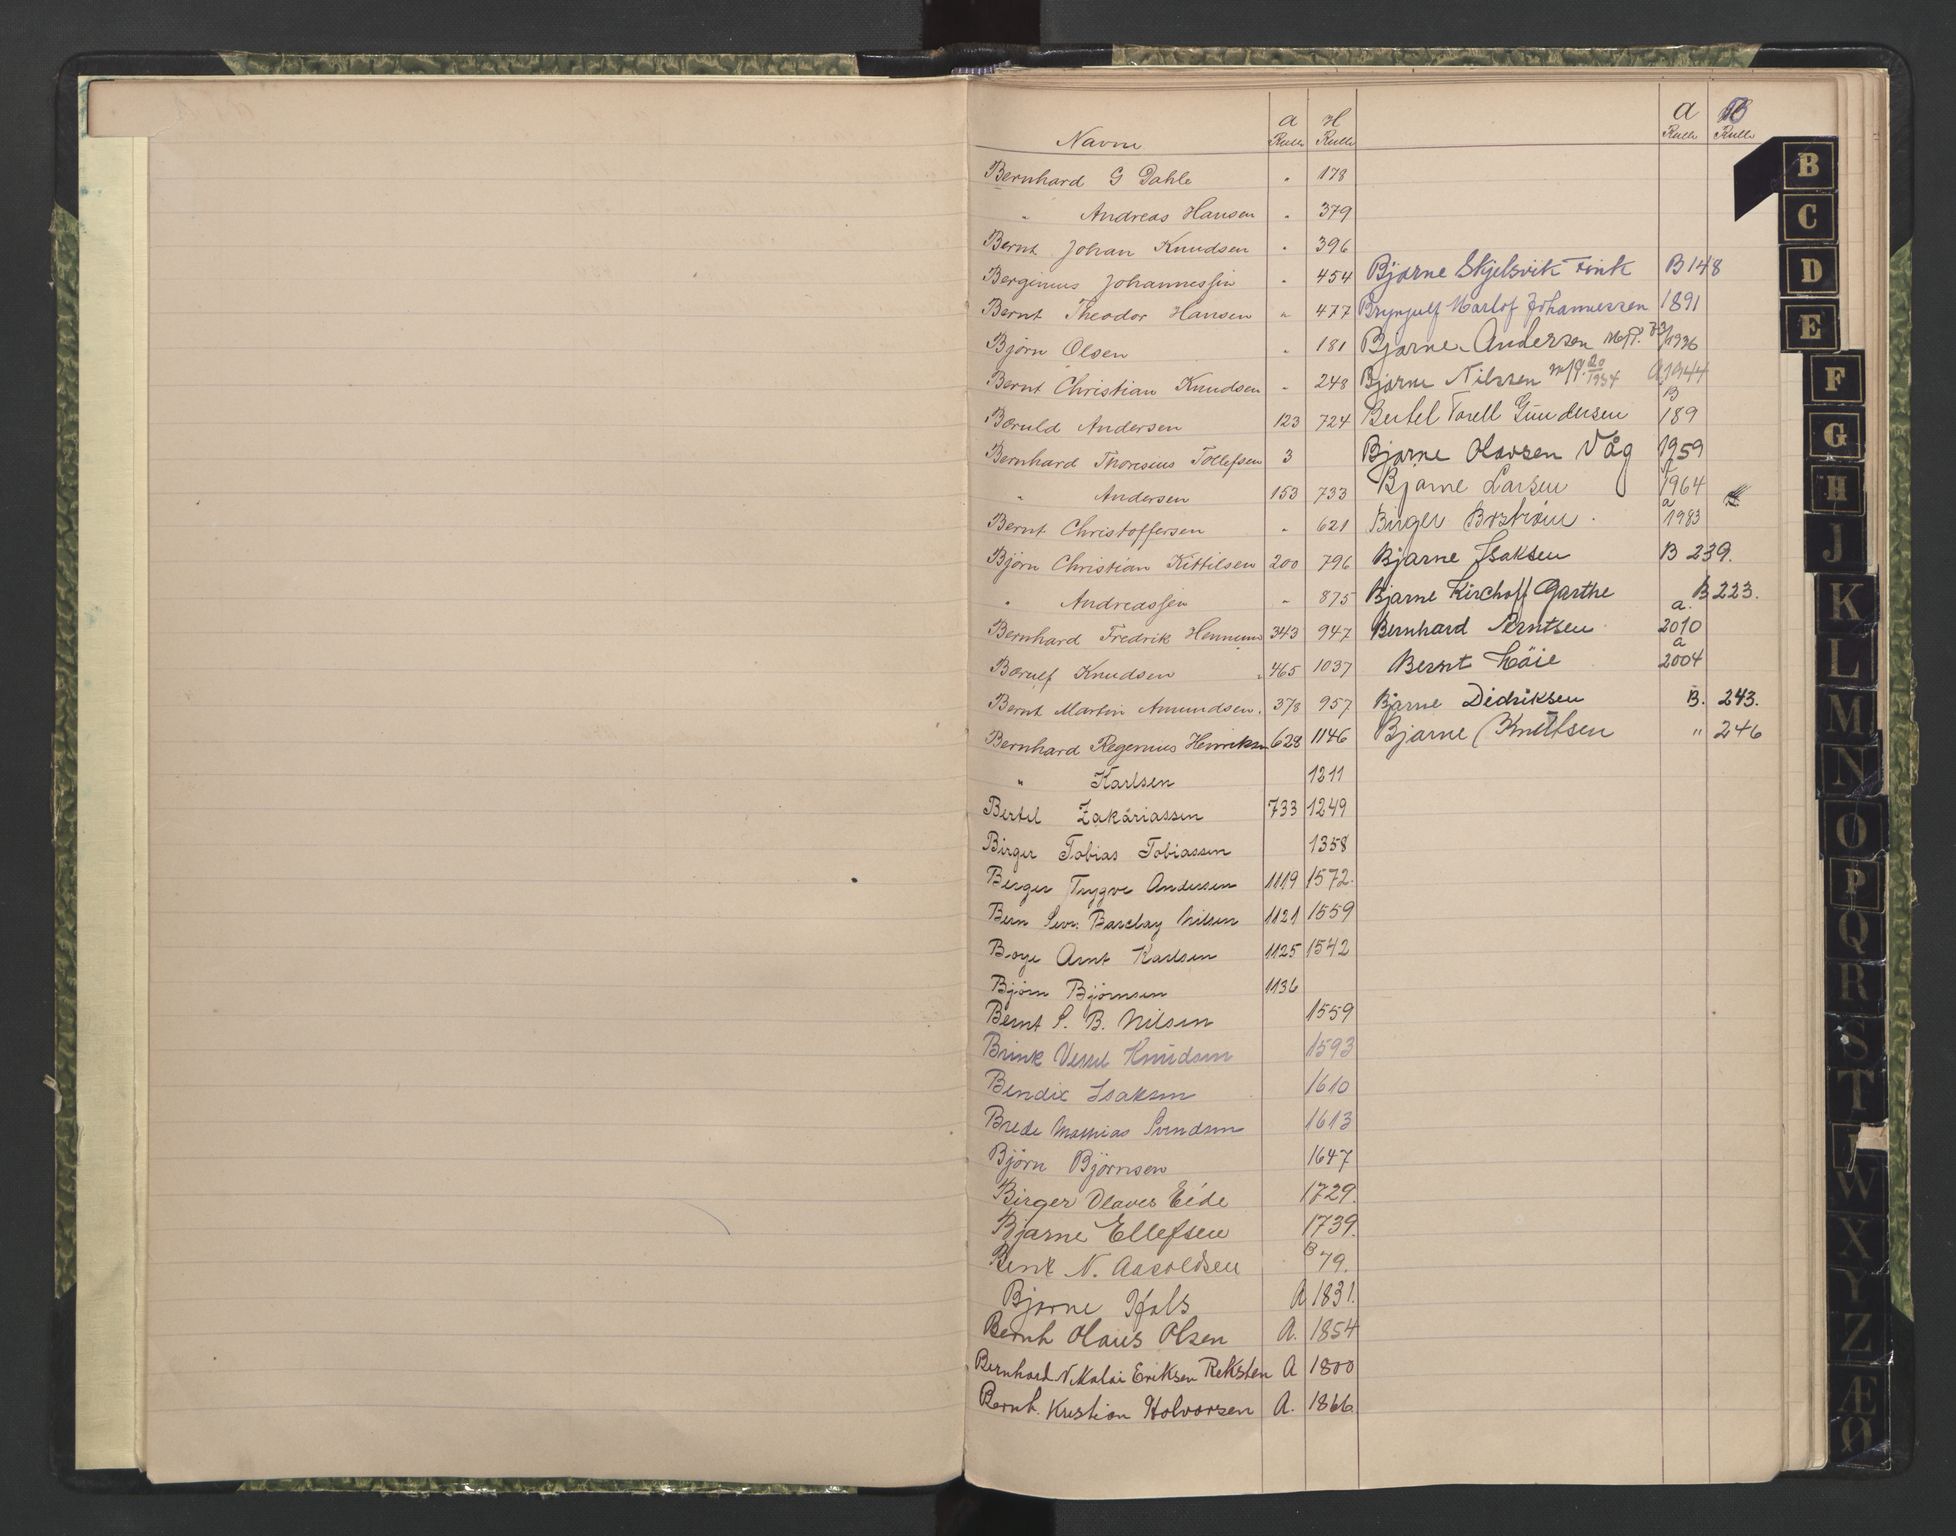 Navn A Rulle H Rulle A Rulle B Rulle
Bernhard G Dahle " 178
" Andreas Hansen " 379
Bernt Johan Knudsen " 396
Berginius Johannessen " 454
Bernt Theodor Hansen " 477
Björn Olsen " 181
Bernt Christian Knudsen " 248
Boruld Andersen 123 724
Bernhard Thoresius Tollefsen 3
" Andersen 153 733
Bernt Christoffersen " 621
Björn Christian Kittilsen 200 796
" Andreassen " 875
Bernhard Fredrik Hennum 343 947
Borulf Knudsen 465 1037
Bernt Martin Amundsen. 378 957
Bernhard Regenius Henriksen 628 1146
" Karlsen 1211
Bertel Zakariassen 733 1249
Birger Tobias Tobiassen 1358
Birger Trygve Andersen 1119 1572.
Bern Sevr. Barclay Nilsen 1121 1559
Boye Arnt Karlsen 1125 1542
Bjørn Bjørnsen 1136
Bernt S. B. Nilsen 1559
Brink Vessel Knudsen 1593
Bendix Isaksen 1610
Brede Mathias Svendsen 1613
Bjørn Bjørnsen 1647
Birger Olaves Eide 1729.
Bjarne Ellefsen 1739.
Bent N. Aasoldsen B 79.
Bjarne Hals A 1831.
Bernh Olaus Olsen A. 1854
Bernhard Nikolai Eriksen Reksten A 1800
Bernh. Kristian Halvorsen A. 1866.
Bjarne Skjelsvik Fink B 148
Brynjulf Marlof Johannessen 1891
Bjarne Andersen 73/1936
Bjarne Nilssen 20/1934 A 1944
Bertel Torell Gundersen B 189
Bjarne Olavsen Våg 1959
Bjarne Larsen A 1964
Birger Boström. a 1983
Bjarne Isaksen B 239.
Bjarne Kirchoff Garthe B 223.
Bernhard Berntsen a. 2010
Bernt Höie a 2004
Bjarne Didriksen B. 243.
Bjarne Knudsen " 246
B
C
D
E
F
G
H
J
K
L
M
N
O
P
Q
R
S
T
W
X
Y
Z
Æ
Ø